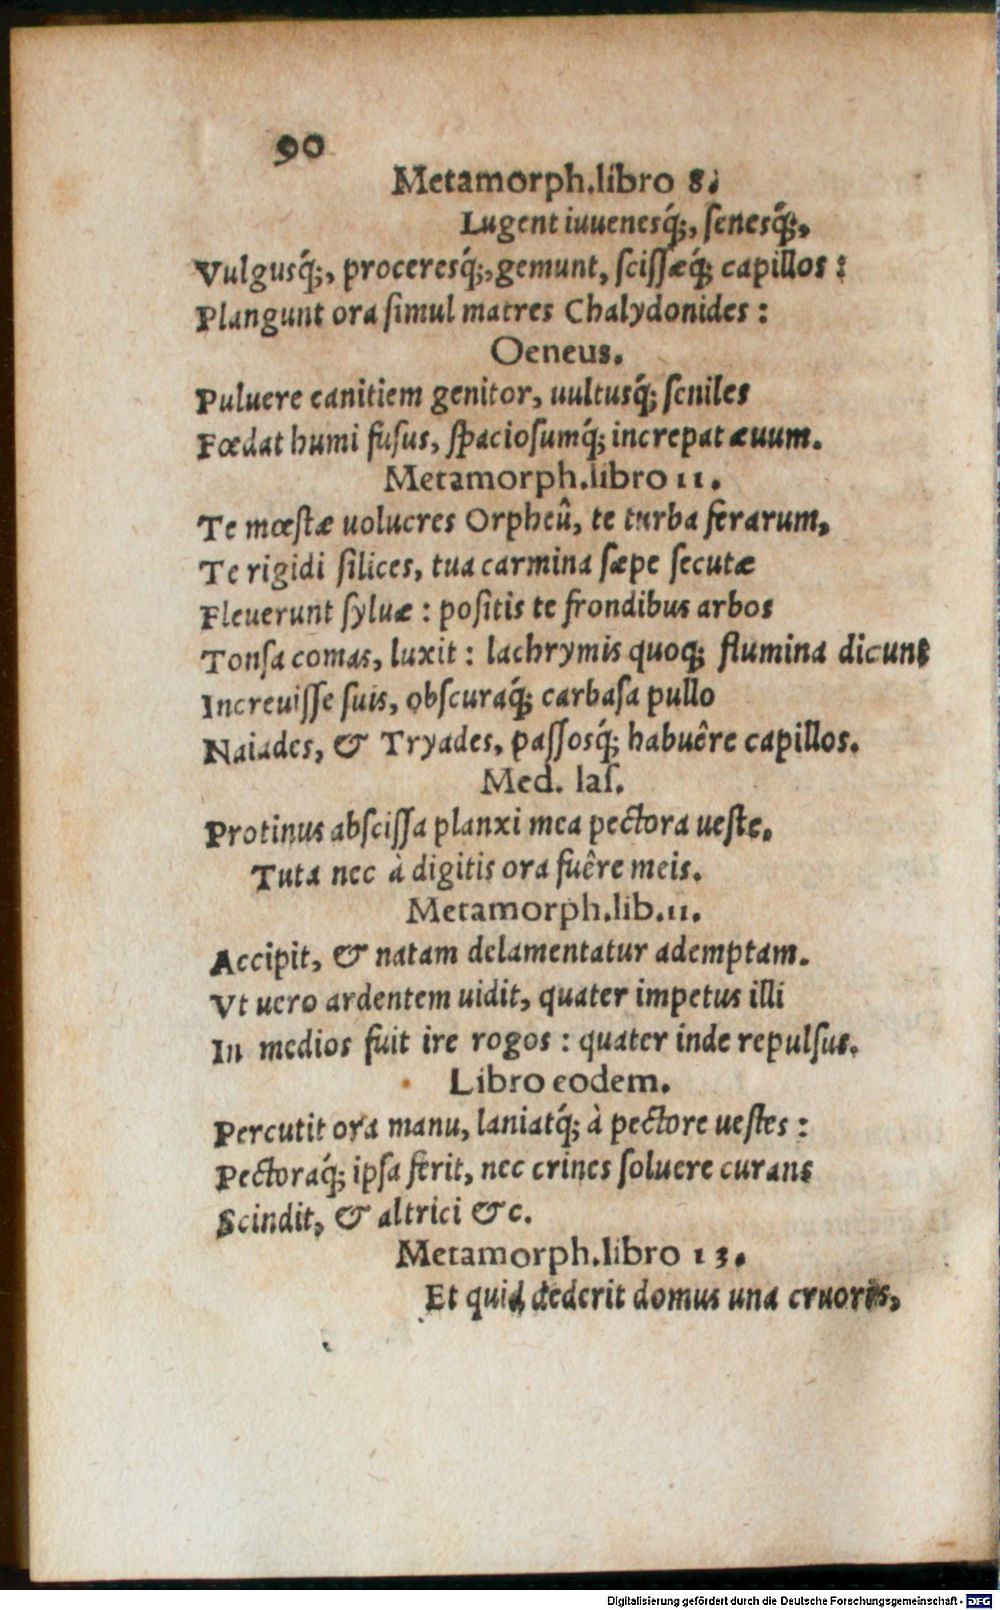 90
Metamorph.libro 8.
Lugent iuuenesq́;, ſenesq́;,
Vulgusq́;, proceresq́;, gemunt, ſciſſæq́; capillos:
Plangunt ora ſimul matres Chalydonides:
Oeneus.
Puluere canitiem genitor, uultusq́; ſeniles
Fœdat humi fuſus, ſpacioſumq́; increpat æuum.
Metamorph.libro 11.
Te mœſtæ uolucres Orpheû, te turba ferarum,
Te rigidi ſilices, tua carmina ſæpe ſecutæ
Fleuerunt ſyluæ: poſitis te frondibus arbos
Tonſa comas, luxit: lachrymis quoq; flumina dicunt
Increuiſſe ſuis, obſcuraq́; carbaſa pullo
Naiades, & Tryades, paſſosq́; habuêre capillos.
Med. Iaſ.
Protinus abſciſſa planxi mea pectora ueſte,
Tuta nec à digitis ora fuêre meis.
Metamorph.lib.11.
Accipit, & natam delamentatur ademptam.
Vt uero ardentem uidit, quater impetus illi
In medios fuit ire rogos: quater inde repulſus.
Libro eodem.
Percutit ora manu, laniatq́; à pectore ueſtes:
Pectoraq́; ipſa ferit, nec crines ſoluere curans
Scindit, & altrici &c.
Metamorph.libro 13.
Et quid dederit domus una cruoris,
Digitalisierung gefördert durch die Deutsche Forschungsgemeinschaft - DFG